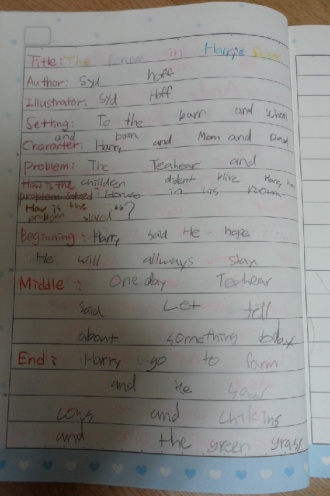 Title: The horse in Harry's Room
Author: Syd hoff
Illustrator: Syd Hoff
Setting: To the barn and school
and barn
Character: Harry and Mom and Dad
Problem: The Teahear and
How is the children didn't blive Harry
problem solved house in his Room
How is the problem slved?
Beginning: Harry said He hope
He will allways stay
Middle: One day Teahear
said Let tell
about something today
End: Harry go to farm
and He saw
cows and chikins
and the green grass